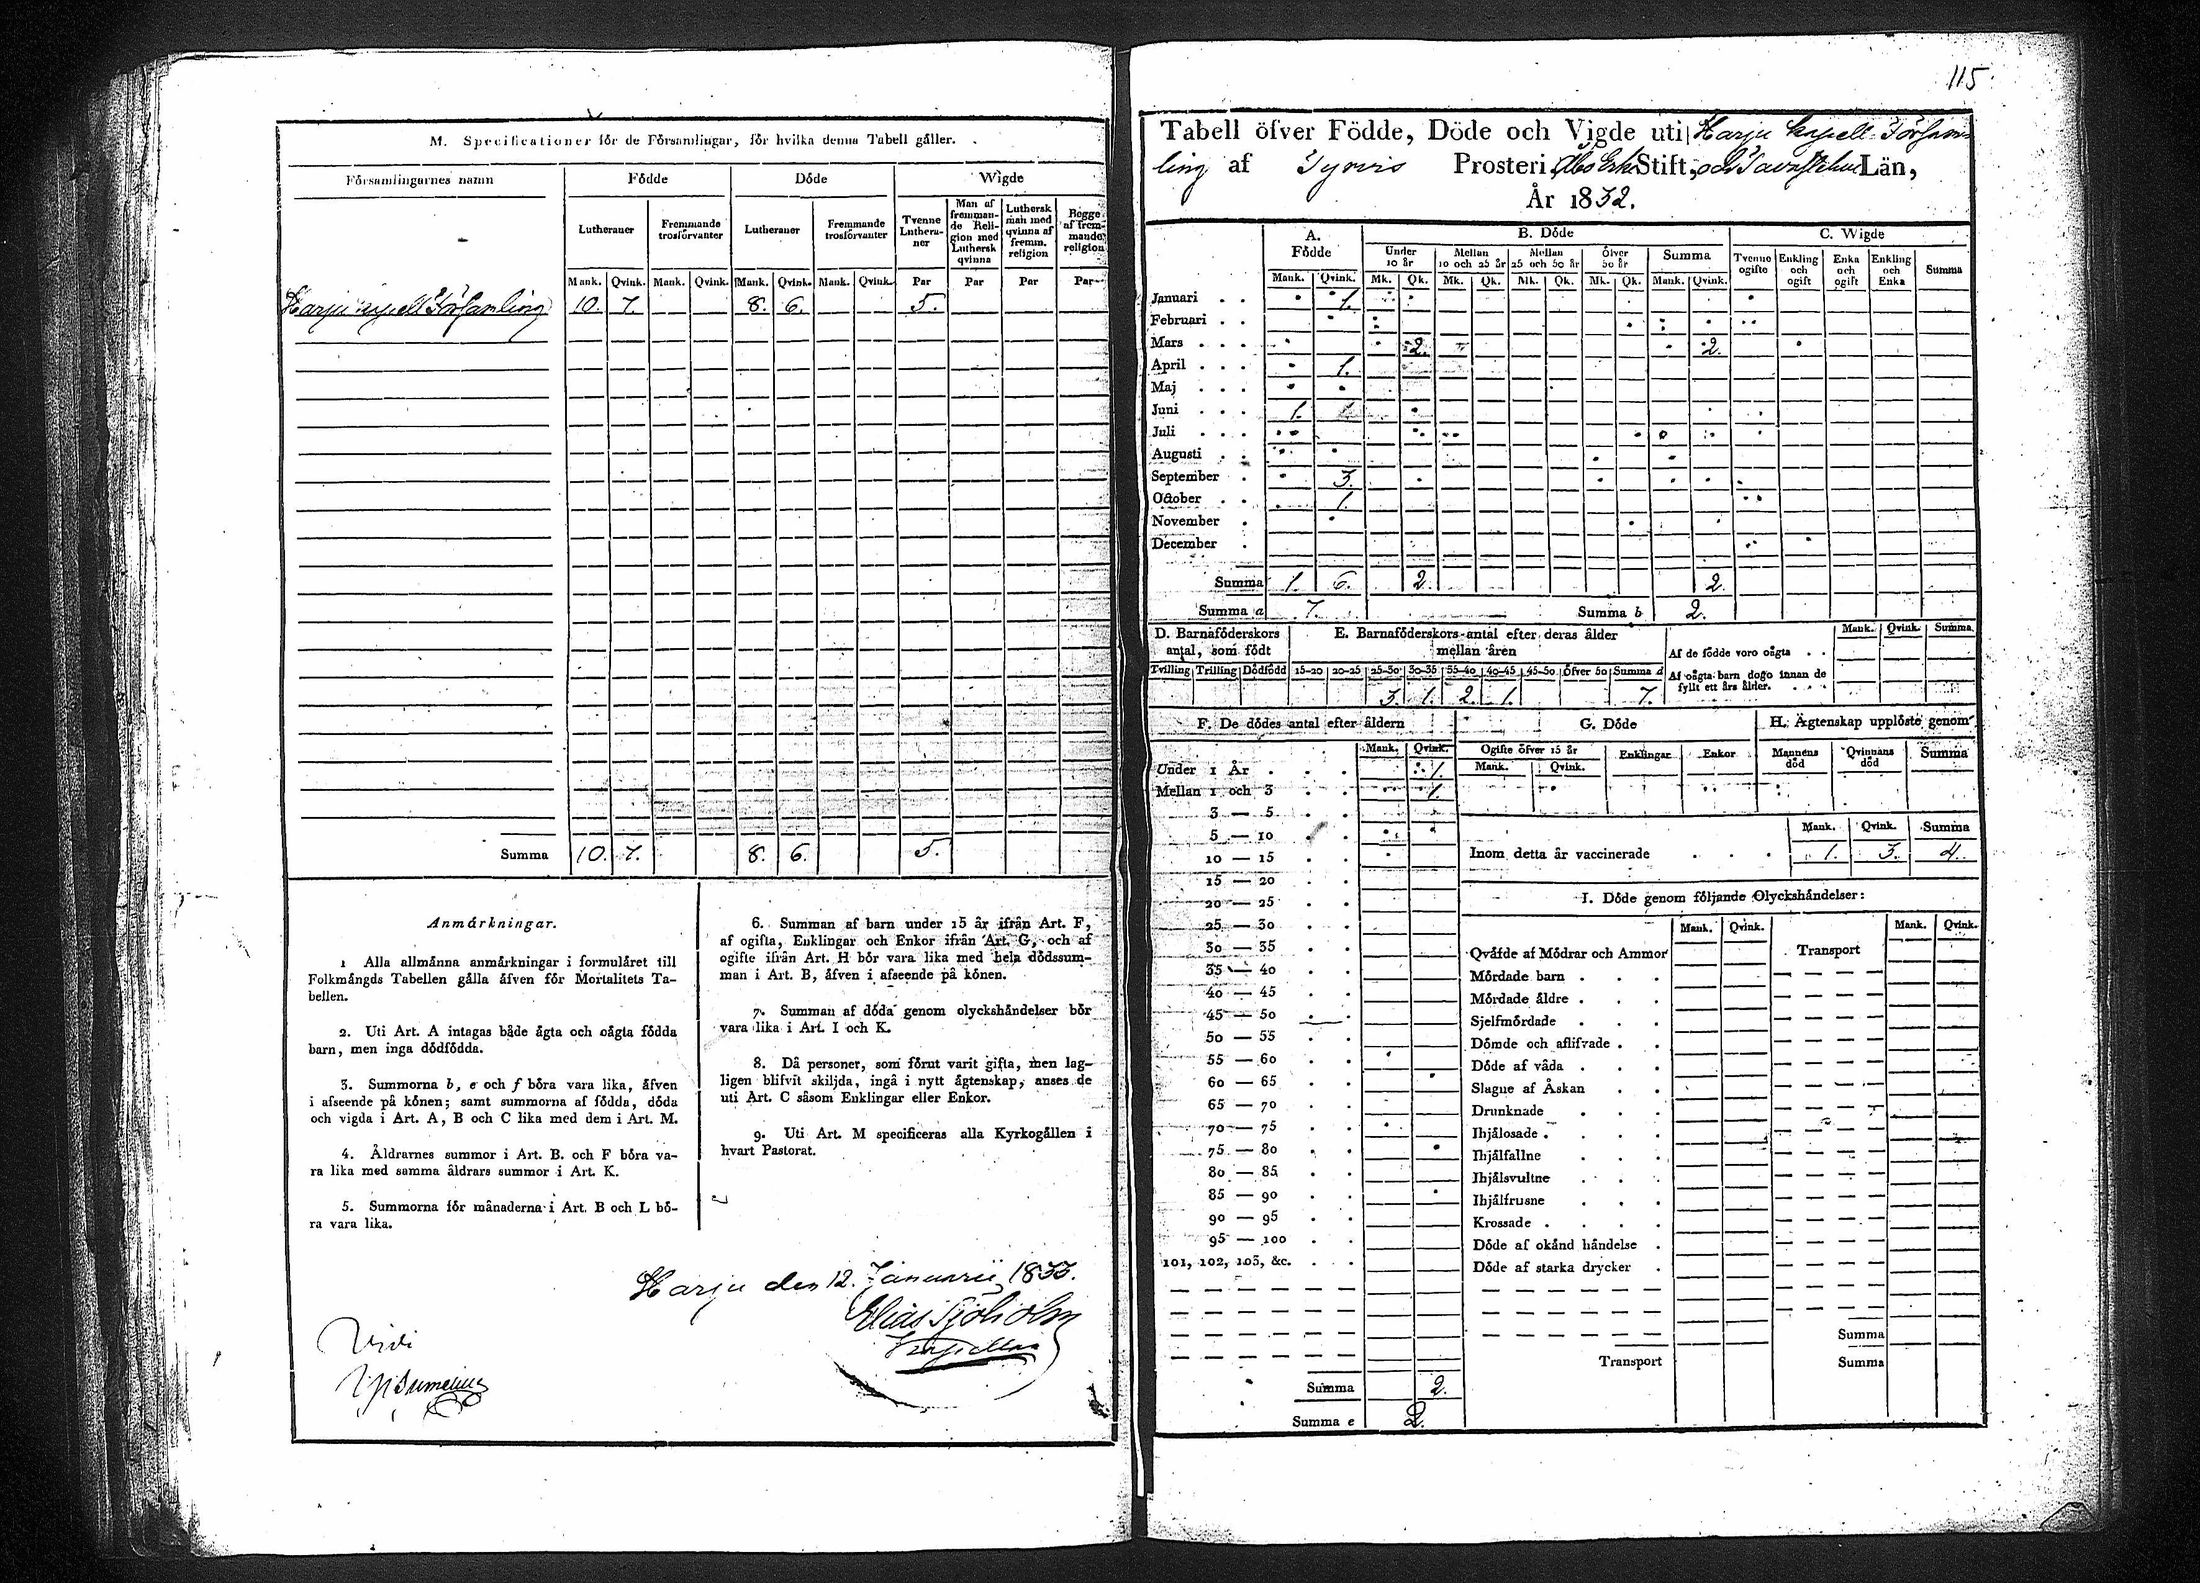 M. Specificationer för de Församlingar, för hvilka denna Tabell gäller.
Församlingarnes namn Födde Döde Wigde
Lutheraner Fremmande trosförvanter Lutheraner Fremmande trosförvanter Tvenne Lutheraner Man af fremmande Religion med Luthersk qvinna Luthersk man med qvinna af fremm. religion Begge af fremmande religion
Mank. Qvink. Mank. Qvink. Mank. Qvink. Mank. Qvink. Par Par Par Par
Harju Församling 10. 7. 8. 6. 5.
Summa 10. 7. 8. 6. 5.
Anmärkningar.
1 Alla allmänna anmärkningar i formuläret till
Folkmängds Tabellen gälla äfven för Mortalitets Ta-
bellen.
2. Uti Art. A intagas både ägta och oägta födda
barn, men inga dödfödda.
3. Summorna b, e och f böra vara lika, äfven
i afseende på könen; samt summorna af födda, döda
och vigda i Art. A, B och C lika med dem i Art. M.
4. Åldrarnes summor i Art. B. och F böra va-
ra lika med samma åldrars summor i Art. K.
5. Summorna för månaderna i Art. B och L bö-
ra vara lika.
6. Summan af barn under 15 år ifrån Art. F,
af ogifta, Enklingar och Enkor ifrån Art. G, och af
ogifte ifrån Art. H bör vara lika med hela dödssum-
man i Art. B, äfven i afseende på könen.
7. Summan af döda genom olyckshändelser bör
vara lika i Art. I och K.
8. Då personer, som förut varit gifta, men lag-
ligen blifvit skiljda, ingå i nytt ägtenskap, anses de
uti Art. C såsom Enklingar eller Enkor.
9. Uti Art. M specificeras alla Kyrkogällen i
hvart Pastorat.
Harju den 12. Januarii 1833.
Elias Sjöholm
Capellan
Vidi
115
Tabell öfver Födde, Döde och Vigde uti Harju Capell Församling
af Tyrvis Prosteri, Åbo Erke Stift, och Tavastehus Län,
År 1832.
A. Födde B. Döde C. Wigde
Under 10 år Mellan 10 och 25 år Mellan 25 och 50 år Öfver 50 år Summa Tvenne ogifte Enkling och ogift Enka och ogift Enkling och Enka Summa
Mank. Qvink. Mk. Qk. Mk. Qk. Mk. Qk. Mk. Qk. Mank. Qvink.
Januari 1.
Februari
Mars 2. 2.
April 1.
Maj
Juni 1.
Juli
Augusti
September 3.
October 1.
November
December
Summa 1. 6. 2. 2.
Summa a 7. Summa b 2.
D. Barnaföderskors antal, som födt
Tvilling Trilling Dödfödd
E. Barnaföderskors antal efter deras ålder mellan åren
15-20 20-25 25-30 30-35 35-40 40-45 45-50 Öfver 50 Summa d
3. 1. 2. 1. 7.
Mank. Qvink. Summa
Af de födde voro oägta
Af oägta barn dogo innan de fyllt ett års ålder.
F. De dödes antal efter åldern
Mank. Qvink.
Under 1 År 1.
Mellan 1 och 3 1.
3 — 5
5 — 10
10 — 15
15 — 20
20 — 25
25 — 30
30 — 35
35 — 40
40 — 45
45 — 50
50 — 55
55 — 60
60 — 65
65 — 70
70 — 75
75 — 80
80 — 85
85 — 90
90 — 95
95 — 100
101, 102, 103, &c.
Summa 2.
Summa e 2.
G. Döde
Ogifte öfver 15 år Enklingar Enkor
Mank. Qvink.
H. Ägtenskap upplöste genom
Mannens död Qvinnans död Summa
Mank. Qvink. Summa
Inom detta år vaccinerade 1. 3. 4.
I. Döde genom följande Olyckshändelser:
Mank. Qvink. Mank. Qvink.
Qväfde af Mödrar och Ammor Transport
Mördade barn
Mördade äldre
Sjelfmördade
Dömde och aflifvade
Döde af våda
Slagne af Åskan
Drunknade
Ihjälosade
Ihjälfallne
Ihjälsvultne
Ihjälfrusne
Krossade
Döde af okänd händelse
Döde af starka drycker
Summa
Transport Summa